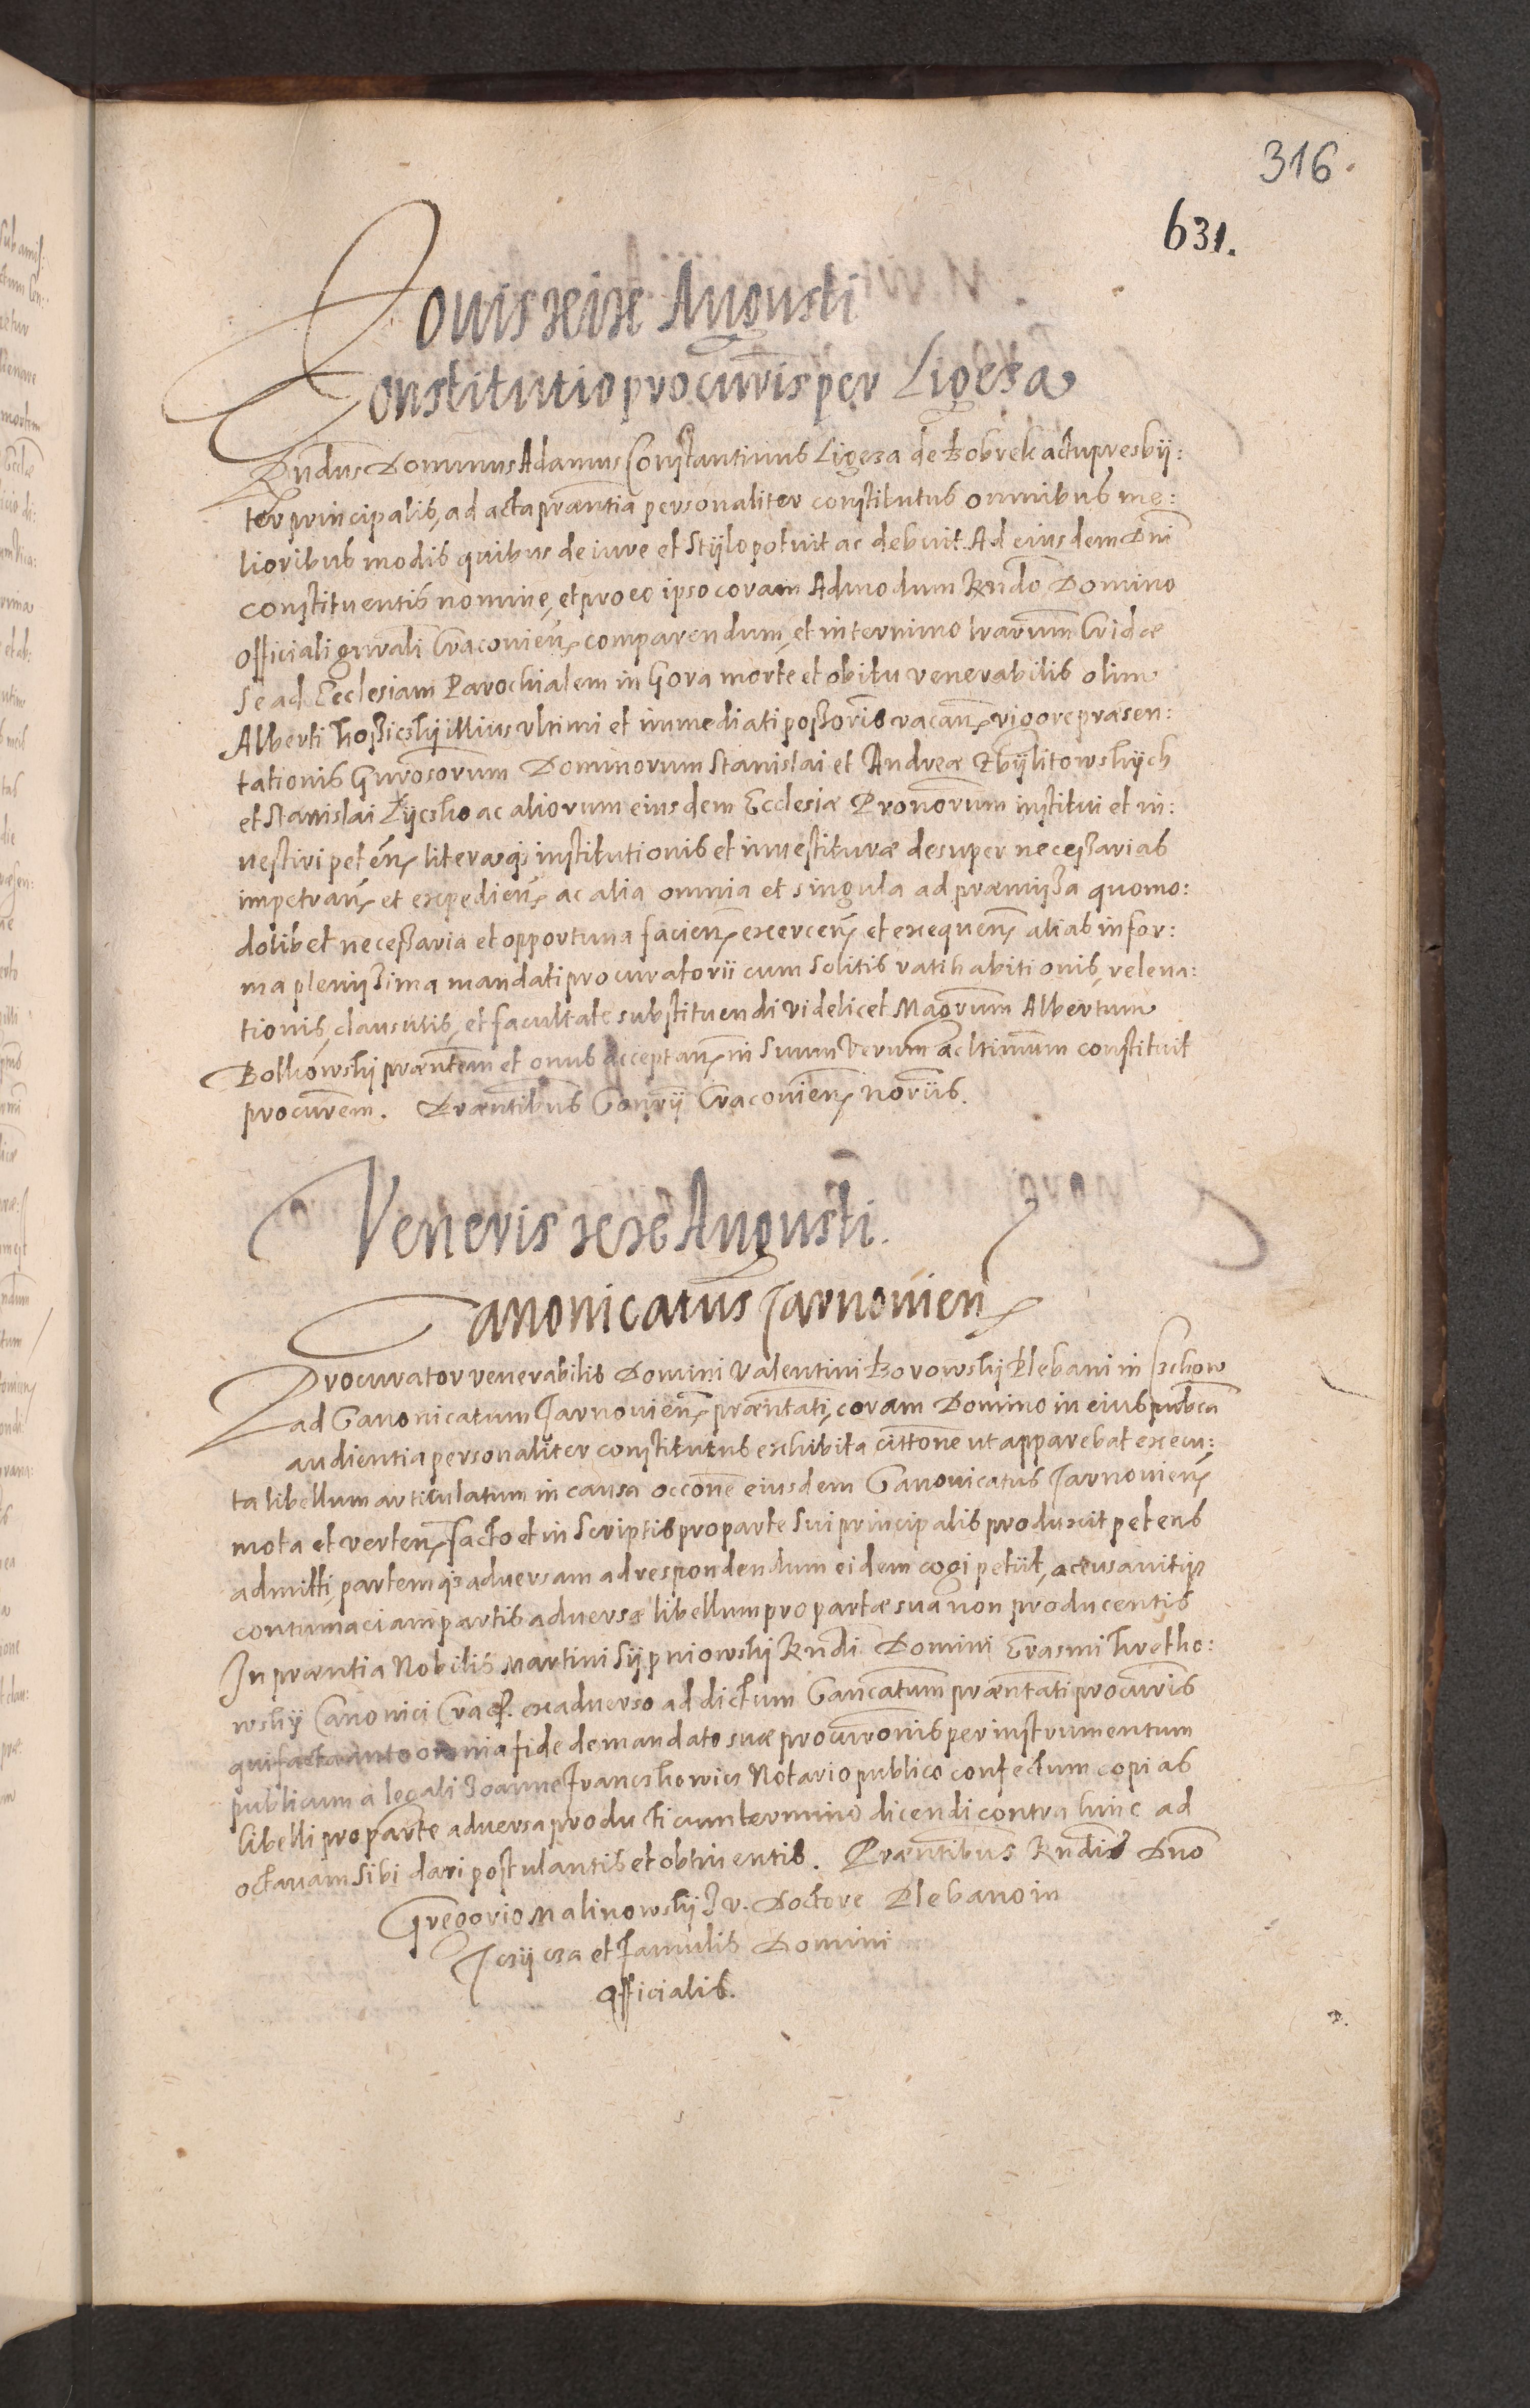 316.
631.
Iouis xxix Augusti
Constitutio procuris per Ligeza
Rndus Dominus Adamus Constantinus Ligeza de Bobrek actu presbij:
ter principalis, ad acta praentia personaliter constitutus omnibus me:
lioribus modis quibus de iure et stylo potuit ac debuit. Ad eiusdem Dni
constituentis nomine, et pro eo ipso coram Admodum Rndo Domino
Officiali gnrali Cracouien comparendum, et in termino lrarum Cridae
se ad Ecclesiam Parochialem in Gora morte et obitu venerabilis olim
Alberti illius vltimi et immediati possoris vacan vigore praesen:
tationis Gnrosorum Dominorum Stanislai et Andreae Zbylitowskych
et Stanislai ac aliorum eiusdem Ecclesiae Pronorum institui et in:
vestiri peten literasqs institutionis et investiturae desuper necessarias
impetran et expedien ac alia omnia et singula ad praemissa quomo:
dolibet necessaria et opportuna facien exercen et exequen alias in for:
ma plenissima mandati procuratorii cum solitis ratihabitionis, releua:
tionis, clausulis, et facultate substituendi videlicet Magrum Albertum
praentem et onus acceptan in suum verum ac ltimum constituit
procurem. Praentibus Consrij Cracouien noriis.
Veneris xxx Augusti.
Canonicatus Tarnouien
Procurator venerabilis Domini Valentini Borowski Plebani in
ad Canonicatum Tarnouien praentati, coram Domino in eius pubca
audientia personaliter constitutus exhibita cittone ut apparebat execu:
ta libellum articulatum in causa occone eiusdem Canonicatus Tarnouien
mota et verten, facto et in scriptis pro parte sui principalis produxit petens
admitti, partemqs adversam ad respondendum eidem cogi petiit, accusavitqs
contumaciam partis adversae libellum pro parte sua non producentis
In praentia Nobilis Martini Sijpniowskj Rndi Domini Erasmi Kretko:
wskij Canonici Crac. ex adverso ad dictum Cancatum praentati procuris
qui facta anto omnia fide de mandato suae procuronis per instrumentum
publicum a legali Joanne Notario publico confectum copias
libelli pro parte adversa producti cum termino dicendi contra hinc ad
octauam sibi dari postulantis et obtinentis. Praentibus Rndis Dno
Gregorio Malinowskj J. v. Doctore Plebano in
et Famulis Domini
Officialis.